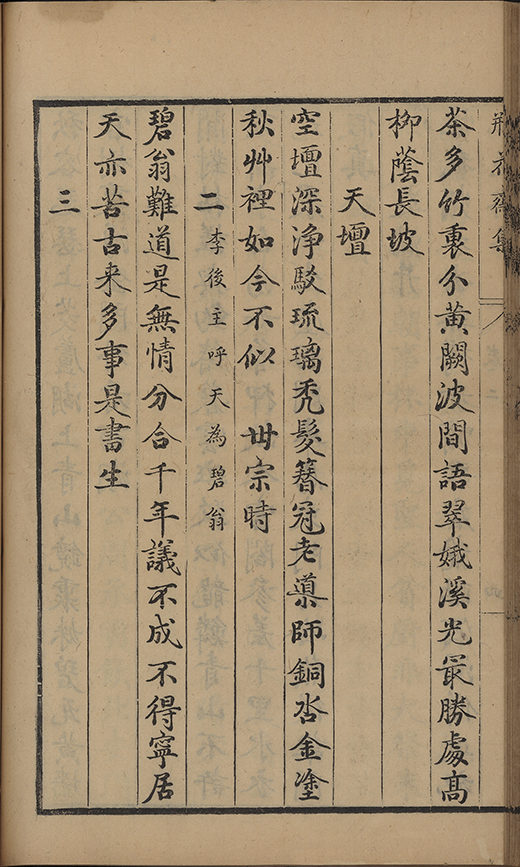 茶多竹裏分黃闕波間語翠娥溪光最勝處高
柳蔭長坡
天壇
空壇深淨駮琉璃禿髮簪冠老導師銅沓金塗
秋艸裡如今不似世宗時
二 李後主呼天為碧翁
碧翁難道是無情分合千年議不成不得寧居
天亦苦古来多事是書生
三